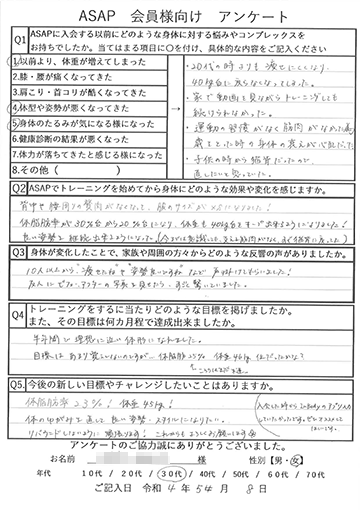 ASAP 会員様向け アンケート
Q1 ASAPに入会する以前にどのような身体に対する悩みやコンプレックスを
お持ちでしたか。当てはまる項目に○を付け、具体的な内容をご記入ください
1.以前より、体重が増えてしまった
2.膝・腰が痛くなってきた
3.肩こり・首コリが酷くなってきた
4.体型や姿勢が悪くなってきた
5.身体のたるみが気になる様になった
6.健康診断の結果が悪くなった
7.体力が落ちてきたと感じる様になった
8.その他( )
・20代の時よりも痩せにくくなり
40kg台に戻らなくなってしまった。
・家で動画を見ながらトレーニングしても
続けられなかった。
・運動の習慣がなく筋肉がなかった為
歳をとった時の身体の衰えが心配だった
・子供の時から猫背だったので
直したいと思っていた
Q2 ASAPでトレーニングを始めてから身体にどのような効果や変化を感じますか。
背中や腰周りの贅肉がなくなって、服のサイズがXSになりました!
体脂肪率が30%台から20%台になり、体重も40kg台を出せるようになりました!
良い姿勢を継続出来るようになった
Q3 身体が変化したことで、家族や周囲の方々からどのような反響の声がありましたか。
10人以上から、痩せたねや姿勢良いですねなど声を掛けてもらいました!
友人にビフォーアフターの写真を見せたら、すごく驚いていました
Q4 トレーニングをするに当たりどのような目標を掲げましたか。
また、その目標は何カ月程で達成出来ましたか。
半年間で理想に近い体形になれました。
目標はあまり覚えていないのですが…体脂肪25%、体重46kgくらいだったかな?
Q5. 今後の新しい目標やチャレンジしたいことはありますか。
体脂肪率23%! 体重45kg!
体のゆがみを直して良い姿勢・スタイルになりたい。
リバウンドしないように頑張ります! これからもよろしくお願いします
アンケートのご協力誠にありがとうございました。
お名前 様 性別【男・女】
年代 10代 / 20代 / 30代 / 40代 / 50代 / 60代 / 70代
ご記入日 令和 4年 5月 8日